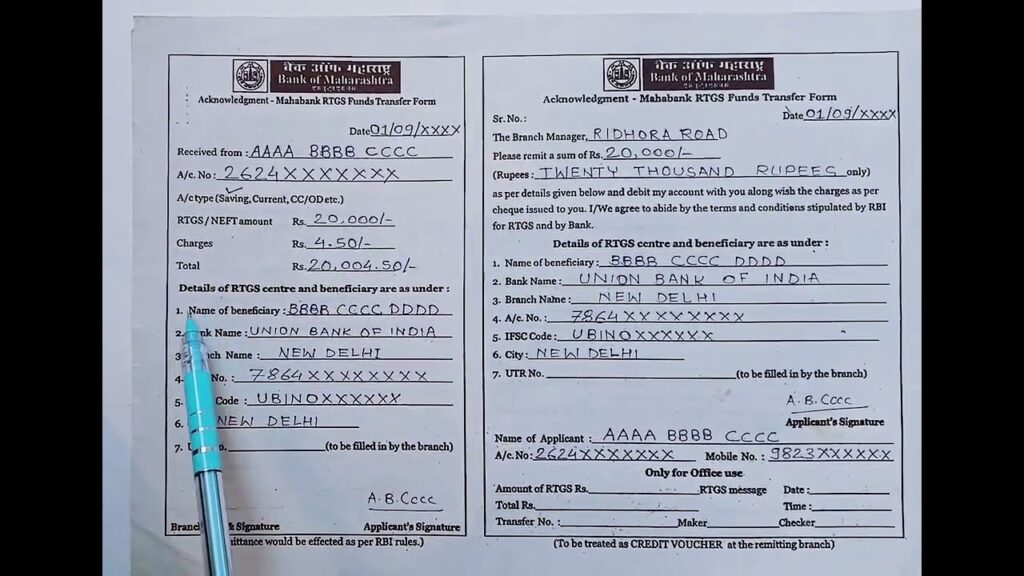 बैंक ऑफ महाराष्ट्र
Bank of Maharashtra
Acknowledgment - Mahabank RTGS Funds Transfer Form
Date 01/09/XXXX
Received from : AAAA BBBB CCCC
A/c. No : 2624XXXXXXX
A/c type (Saving, Current, CC/OD etc.)
RTGS / NEFT amount Rs. 20,000/-
Charges Rs. 4.50/-
Total Rs. 20,004.50/-
Details of RTGS centre and beneficiary are as under :
1. Name of beneficiary : BBBB CCCC DDDD
2. Name : UNION BANK OF INDIA
3. Name : NEW DELHI
4. No. : 7864XXXXXXXX
5. Code : UBINOXXXXXX
6. NEW DELHI
7. (to be filled in by the branch)
A.B.Cccc
& Signature Applicant's Signature
would be effected as per RBI rules.)
बैंक ऑफ महाराष्ट्र
Bank of Maharashtra
Acknowledgment - Mahabank RTGS Funds Transfer Form
Sr. No. : Date 01/09/XXXX
The Branch Manager, RIDHORA ROAD
Please remit a sum of Rs. 20,000/-
(Rupees : TWENTY THOUSAND RUPEES only)
as per details given below and debit my account with you along wish the charges as per
cheque issued to you. I/We agree to abide by the terms and conditions stipulated by RBI
for RTGS and by Bank.
Details of RTGS centre and beneficiary are as under :
1. Name of beneficiary : BBBB CCCC DDDD
2. Bank Name : UNION BANK OF INDIA
3. Branch Name : NEW DELHI
4. A/c. No. : 7864XXXXXXXX
5. IFSC Code : UBINOXXXXXX
6. City : NEW DELHI
7. UTR No. (to be filled in by the branch)
A.B.Cccc
Applicant's Signature
Name of Applicant : AAAA BBBB CCCC
A/c. No: 2624XXXXXXX Mobile No. : 9823XXXXXX
Only for Office use
Amount of RTGS Rs. RTGS message Date :
Total Rs. Time :
Transfer No. : Maker Checker
(To be treated as CREDIT VOUCHER at the remitting branch)